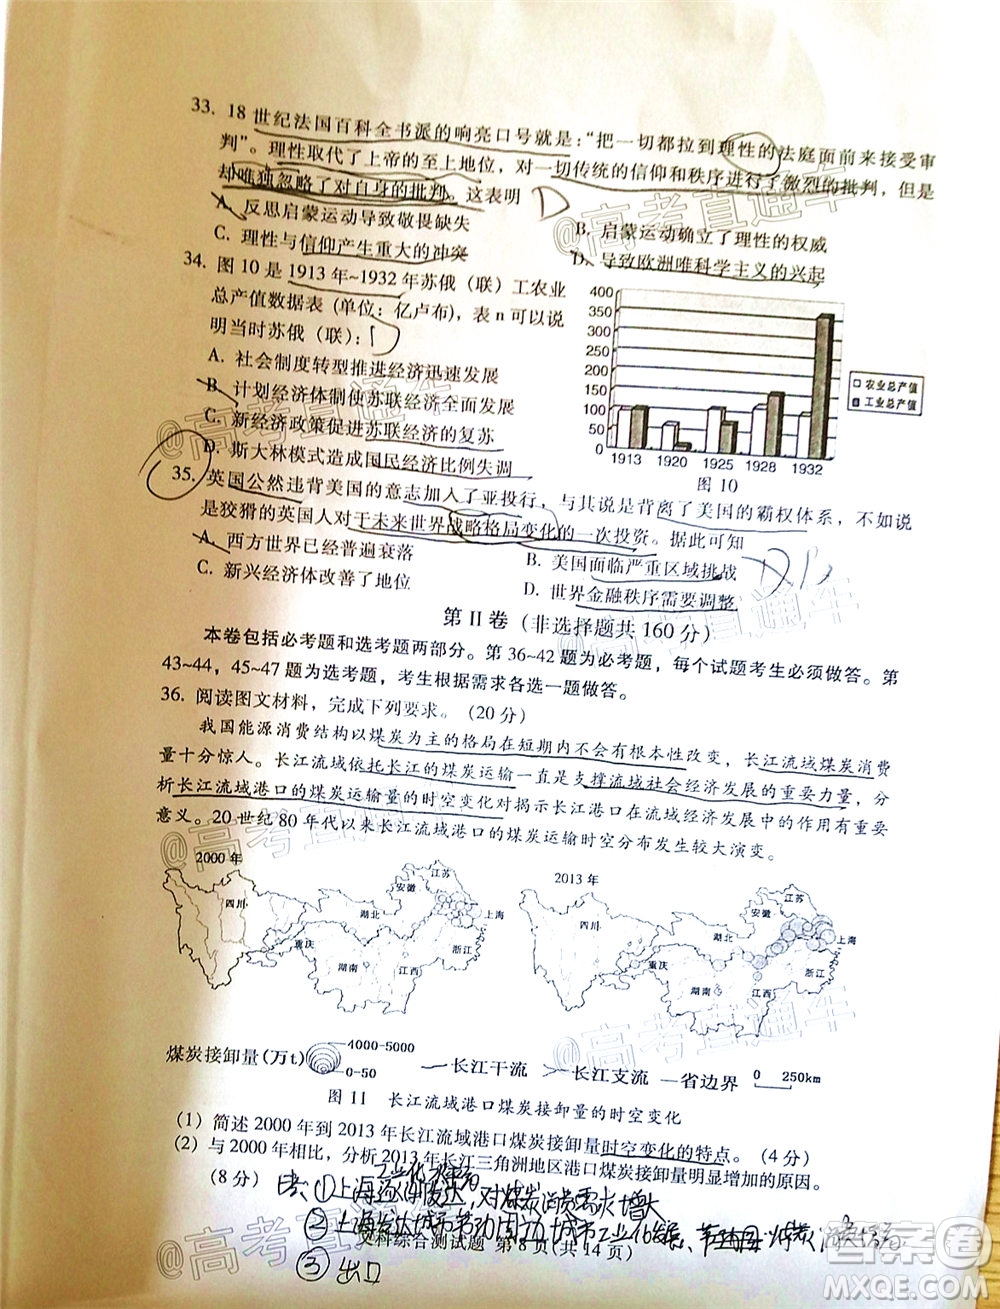 33. 18 世纪法国百科全书派的响亮口号就是：“把一切都拉到理性的法庭面前来接受审
判”。理性取代了上帝的至上地位，对一切传统的信仰和秩序进行了激烈的批判，但是
却唯独忽略了对自身的批判。这表明
D
A. 反思启蒙运动导致敬畏缺失
B. 启蒙运动确立了理性的权威
C. 理性与信仰产生重大的冲突
D. 导致欧洲唯科学主义的兴起
34. 图 10 是 1913 年~1932 年苏俄（联）工农业
总产值数据表（单位：亿卢布），表 n 可以说
明当时苏俄（联）：
D
A. 社会制度转型推进经济迅速发展
B. 计划经济体制使苏联经济全面发展
C. 新经济政策促进苏联经济的复苏
D. 斯大林模式造成国民经济比例失调
400
350
300
250
200
150
100
50
0
1913 1920 1925 1928 1932
农业总产值
工业总产值
图 10
35. 英国公然违背美国的意志加入了亚投行，与其说是背离了美国的霸权体系，不如说
是狡猾的英国人对于未来世界战略格局变化的一次投资。据此可知
A. 西方世界已经普遍衰落
B. 美国面临严重区域挑战
C. 新兴经济体改善了地位
D. 世界金融秩序需要调整
第 II 卷（非选择题共 160 分）
本卷包括必考题和选考题两部分。第 36~42 题为必考题，每个试题考生必须做答。第
43~44，45~47 题为选考题，考生根据需求各选一题做答。
36. 阅读图文材料，完成下列要求。（20 分）
我国能源消费结构以煤炭为主的格局在短期内不会有根本性改变，长江流域煤炭消费
量十分惊人。长江流域依托长江的煤炭运输一直是支撑流域社会经济发展的重要力量，分
析长江流域港口的煤炭运输量的时空变化对揭示长江港口在流域经济发展中的作用有重要
意义。20 世纪 80 年代以来长江流域港口的煤炭运输时空分布发生较大演变。
2000 年
四川
重庆
湖北
湖南
江西
安徽
江苏
上海
浙江
2013 年
四川
重庆
湖北
湖南
江西
安徽
江苏
上海
浙江
煤炭接卸量(万t)
4000-5000
0-50
长江干流
长江支流
省边界
0 250km
图 11 长江流域港口煤炭接卸量的时空变化
(1) 简述 2000 年到 2013 年长江流域港口煤炭接卸量时空变化的特点。（4 分）
(2) 与 2000 年相比，分析 2013 年长江三角洲地区港口煤炭接卸量明显增加的原因。
（8 分）
对煤炭消费需求增大
② 上海
③ 出口
文科综合测试题 第 8 页(共 14 页)
@高考直通车
@高考直通车
@高考直通车
@高考直通车
@高考直通车
答案圈
MXQE.COM